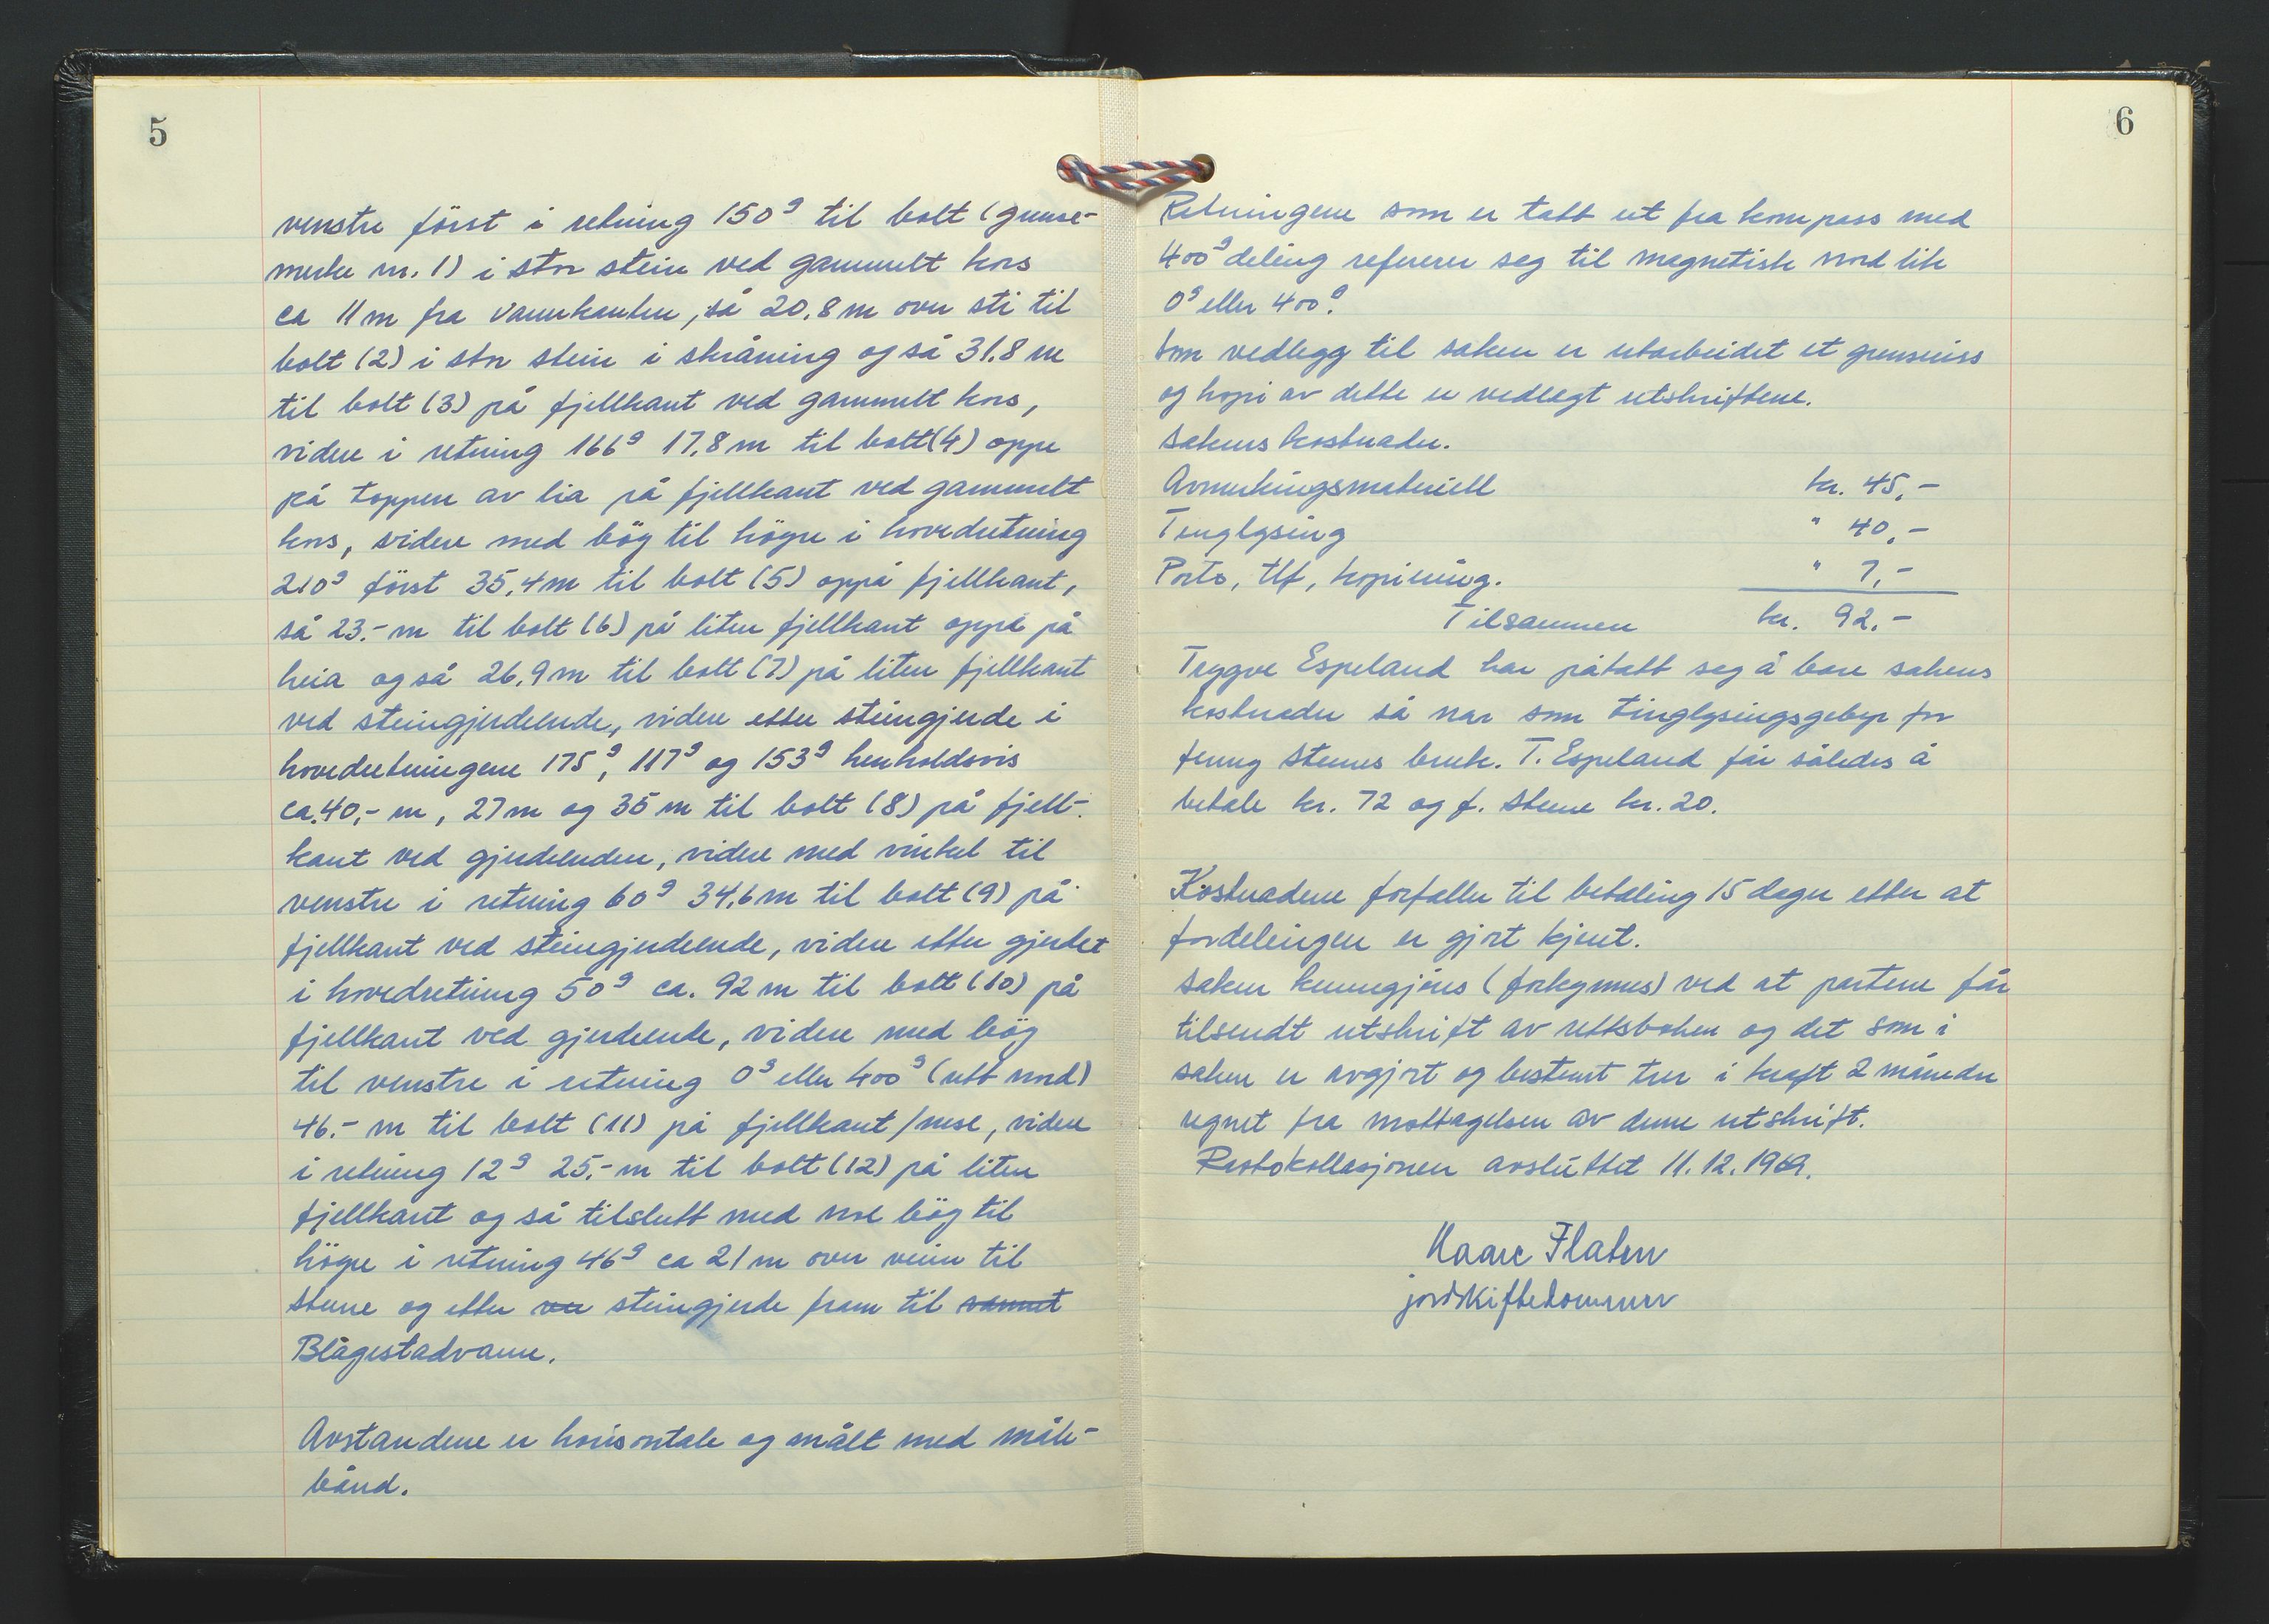 5
venstre först i retning 150g til bolt (grense-
merke nr. 1) i stor stein ved gammelt kors
ca 11 m fra vannkanten, så 20,8 m over sti til
bolt (2) i stor stein i skråning og så 31,8 m
til bolt (3) på fjellkant ved gammelt kors,
videre i retning 166g 17,8 m til bolt (4) oppe
på toppen av lia på fjellkant ved gammelt
kors, videre med bög til högre i hovedretning
210g först 35,4 m til bolt (5) oppå fjellkant,
så 23.- m til bolt (6) på liten fjellkant oppå på
heia og så 26,9 m til bolt (7) på liten fjellkant
ved steingjerdeende, videre etter steingjerde i
hovedretningene 175g, 117g og 153g henholdsvis
ca. 40,- m, 27 m og 35 m til bolt (8) på fjell-
kant ved gjerdeenden, videre med vinkel til
venstre i retning 60g 34,6 m til bolt (9) på
fjellkant ved steingjerdeende, videre etter gjerdet
i hovedretning 50g ca. 92 m til bolt (10) på
fjellkant ved gjerdeende, videre med bög
til venstre i retning 0g eller 400g (rett nord)
46.- m til bolt (11) på fjellkant/nese, videre
i retning 12g 25.- m til bolt (12) på liten
fjellkant og så tilslutt med noe bög til
högre i retning 46g ca 21 m over veien til
Stene og etter steingjerde fram til vannet
Blågestadvann.
Avstandene er horisontale og målt med måle-
bånd.
6
Retningene som er tatt ut fra kompass med
400g deling referer seg til magnetisk nord lik
0g eller 400g.
Som vedlegg til saken er utarbeidet et grenseriss
og kopi av dette er vedlegt utskriftene.
Sakens kostnader.
Avmerkingsmateriell kr. 45,-
Tinglysing " 40,-
Porto, tlf, kopiering. " 7,-
Tilsammen kr. 92.-
Tryggve Espeland har påtatt seg å bære sakens
kostnader så nær som tinglysingsgebyr for
Stenes bruk. T. Espeland får således å
betale kr. 72 og f. Stene kr. 20.
Kostnadene forfaller til betaling 15 dager etter at
fordelingen er gjort kjent.
Saken kunngjöres (forkynnes) ved at partene får
tilsendt utskrift av rettsboken og det som i
saken er avgjort og bestemt trer i kraft 2 måneder
regnet fra mottagelsen av denne utskrift.
Protokollasjonen avsluttet 11.12.1969.
Kaare Flaten
jordskiftedommer